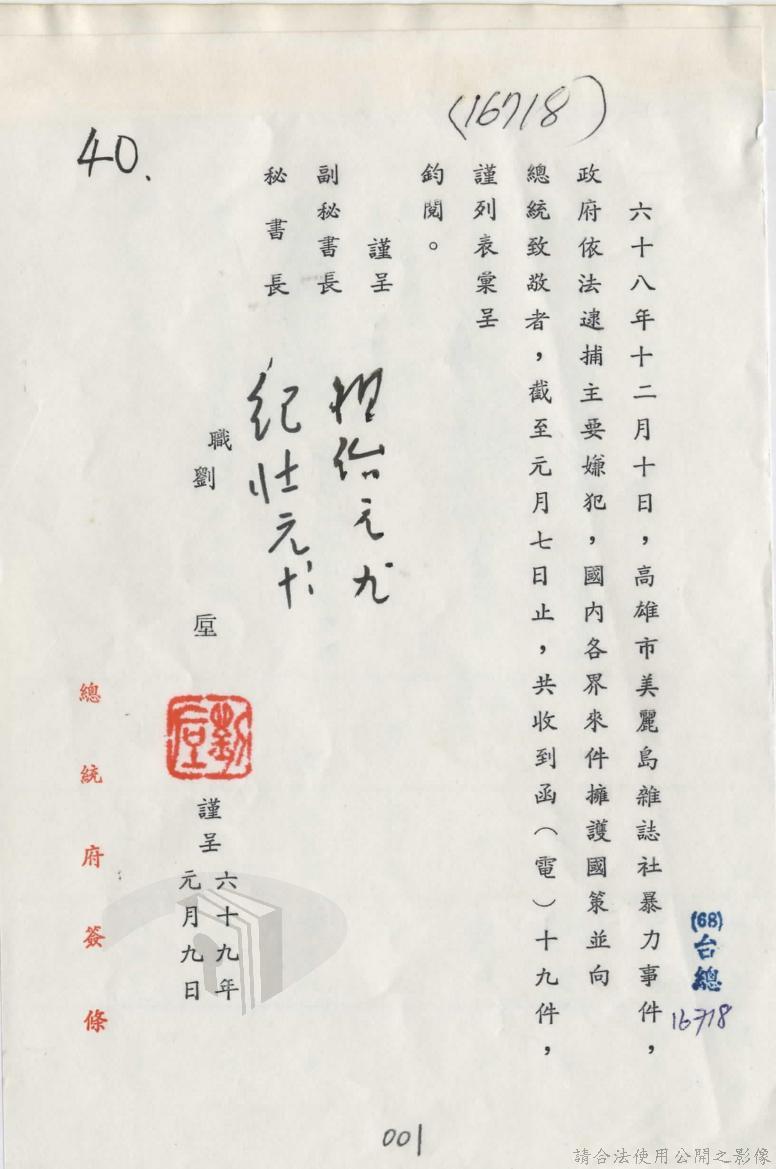 (16718)
40.
六十八年十二月十日，高雄市美麗島雜誌社暴力事件，
政府依法逮捕主要嫌犯，國內各界來件擁護國策並向
總統致敬者，截至元月七日止，共收到函（電）十九件，
謹列表彙呈
鈞閱。
謹呈
副秘書長
秘書長
元九
職劉垕
謹呈
六十九年
元月九日
總統府簽條
(68)
台總
16718
001
請合法使用公開之影像